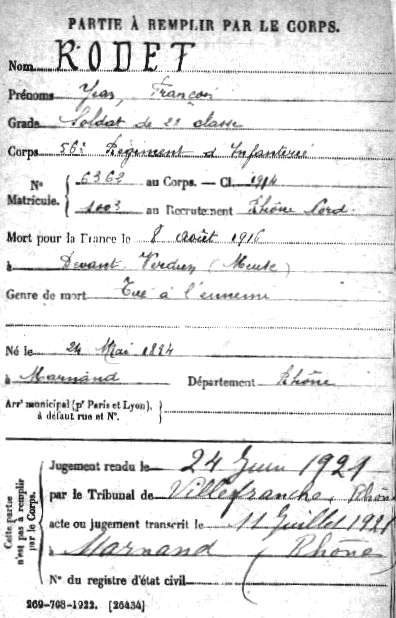 PARTIE À REMPLIR PAR LE CORPS.
Nom RODET
Prénoms Jean, François
Grade Soldat de 2e classe
Corps 56e Régiment d'Infanterie
N° Matricule. { 6362 au Corps. — Cl. 1914
1003 au Recrutement Rhône Nord
Mort pour la France le 8 août 1916
à Devant Verdun (Meuse)
Genre de mort Tué à l'ennemi
Né le 24 Mai 1894
à Marnand Département Rhône
Arrt municipal (pr Paris et Lyon), à défaut rue et N°.
Cette partie n'est pas à remplir par le Corps.
Jugement rendu le 24 Juin 1921
par le Tribunal de Villefranche, Rhône
acte ou jugement transcrit le 11 Juillet 1921
à Marnand (Rhône)
N° du registre d'état civil
269-708-1922. [26434]